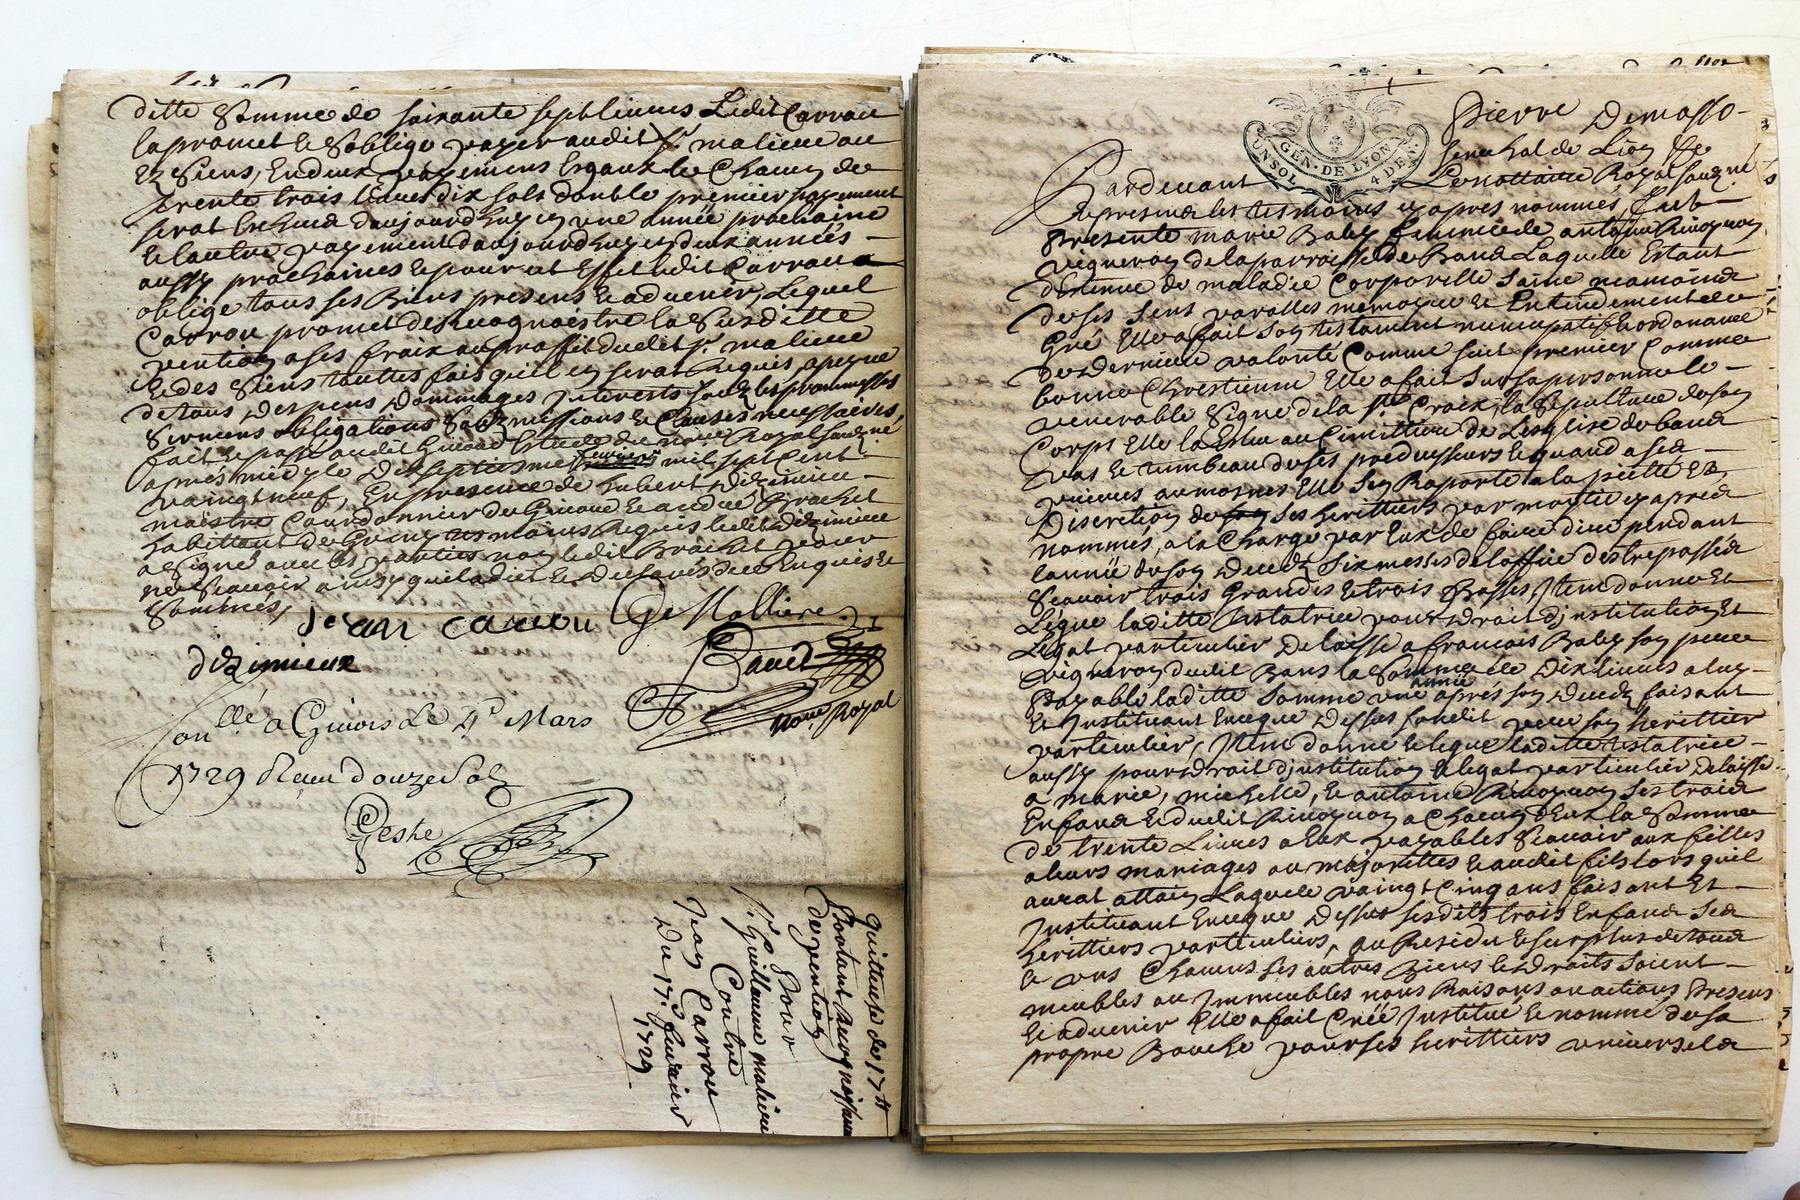 ditte Somme de soixante sept livres Ledit Carrou
la promet et soblige payer audit Sr. maliere ou
ez Siens, En deux payemens Egaux de Chacun de
trente trois livres dix sols dont le premier payement
serat En fin daujourdhuy en une année prochaine
Et lautre payement daujourdhuy en deux années
aussy prochaines Et pour cet Effet ledit Carrou a
oblige tous ses Biens presens Et advenir, Lequel
Carrou promet de reconnoistre la Susditte
vention a ses fraix au proffit dudit Sr. maliere
Et des Siens touttes fois quil en serat Requis, a peyne
de tous Despens Dommages Interests soubz les promesses
sermens obligations Submissions et Clauses necessaires,
fait et passé audit Givord Estude du nore. Royal soussigné
apres midy le Dix Septiesme fevrier mil sept cent
vaingt neuf, En presence de hubert dizimieu
maistre Courdonnier du Givord Et andré Brachet
habittant de tesmoins Requis ledit dizimieu
a signé avec les parties non ledit Brachet pour
ne scavoir ainsy quil a dit Et Declaré de ce Enquis Et
Sommés,
Jean carrou G De Mallierre
dizimieux
noire. Royal
Conllé. a Givors Le 4e Mars
1729 Receu douze Sols
Geshe
Quittance de 17 tt
Portant Recognoissance
de vention
Pour
Sr. Guillaume maliere
Contre
Jean Carrou
Du 17e. fevrier
1729
Pierre Demasso
GEN. DE LYON
UN SOL 4 DEN.
senechal de Lion
Pardevant Le nottaire Royal soussigné
Et presens les tesmoins cy apres nommés, fut
presente marie Baby femme de antoine
vigneron de la parroisse de Bans Laquelle Estant
detenue de maladie Corporelle Saine neamoins
de ses sens parolles memoyre Et Entendement de
Gré Elle a fait son testament nuncupatif Et ordonance
de derniere volonté Comme suit premier Comme
bonne Chrestienne Elle a fait Sur sa personne le
venerable Signe de la Ste. Croix, la Sepulture de son
Corps Elle la Eslue au Cimittiere de Lesglise de bans
vas Et tumbeau de ses predecesseurs Et quand a ses
aumosnes Elle sen Raporte a la piette Et
Discretion de ses herittiers par moitié cy apres
nommés, a la Charge par Eux de faire dire pendant
lannée de son Decedz Six messes de loffice des trepassés
Scavoir trois Grandes Et trois Basses, Item donne Et
Legue laditte testatrice pour droit dinstitution Et
Legat particulier Delaisse a francois Baby son pere
vigneron dudit Bans la Somme de Dix livres a luy
payable laditte Somme une année apres son Decedz faisant
Et Instituant En ce que Dessus sondit pere son herittier
particulier, Item donne Et legue laditte testatrice
aussy pour droit dinstitution Et legat particulier Delaisse
a marie, michelle, Et antoine ses trois
Enfans Et dudit a Chacun deux la Somme
de trente Livres a Eux payables Scavoir aux filles
a leurs mariages ou majorittes Et audit fils lors quil
aurat attain Laage de vaingt Cinq ans faisant Et
Instituant En ce que Dessus sesdits trois Enfans Ses
herittiers particuliers, au Residu Et surplus de tous
Et uns Chacuns ses autres Biens Et Droits Soient
meubles ou Immeubles noms Raisons ou actions Presens
Et advenir Elle a fait Créé Institué Et nommé de sa
propre Bouche pour ses herittiers universels